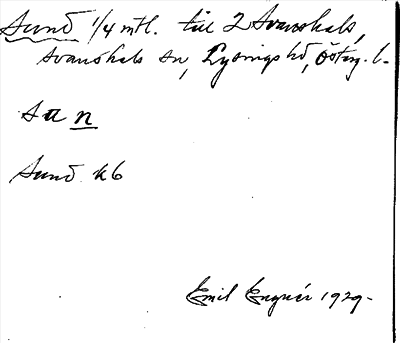 Sund 1/4 mtl. till 2 Svanshals,
Svanshals sn, Lysings hd, Östg. l.
Sund kb
Emil Engnér 1929.